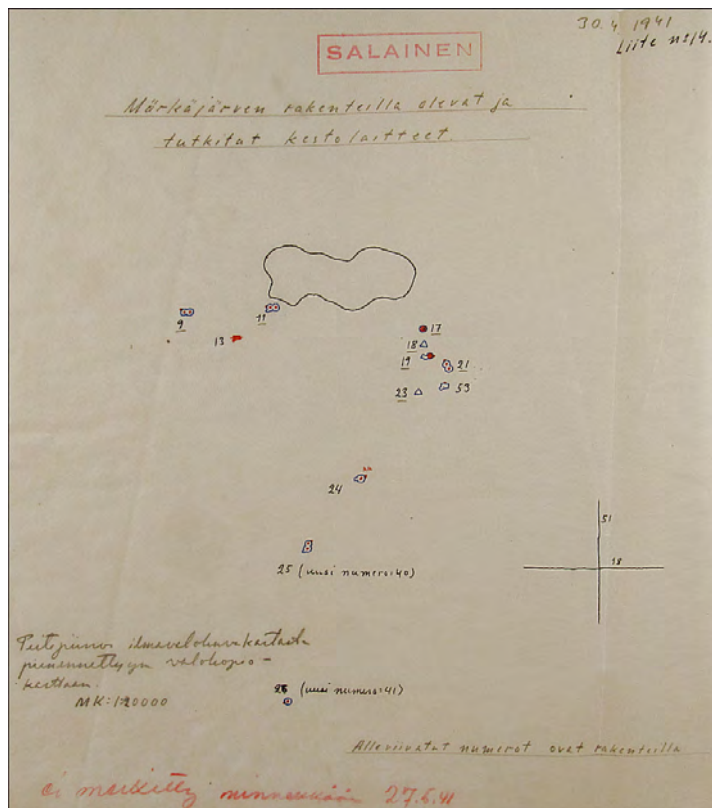 30.4 1941
Liite n:o 14.
SALAINEN
Märkäjärven rakenteilla olevat ja
tutkitut kestolaitteet.
9
11
13
17
18
19
21
23
53
24
25 (uusi numero: 40)
51
18
Peitepiirros ilmavalokuvakartasta
pienennettyyn valokopio-
karttaan.
MK: 1:20000
26 (uusi numero: 41)
Alleviivatut numerot ovat rakenteilla
ei merkitty minnekään 27.5.41